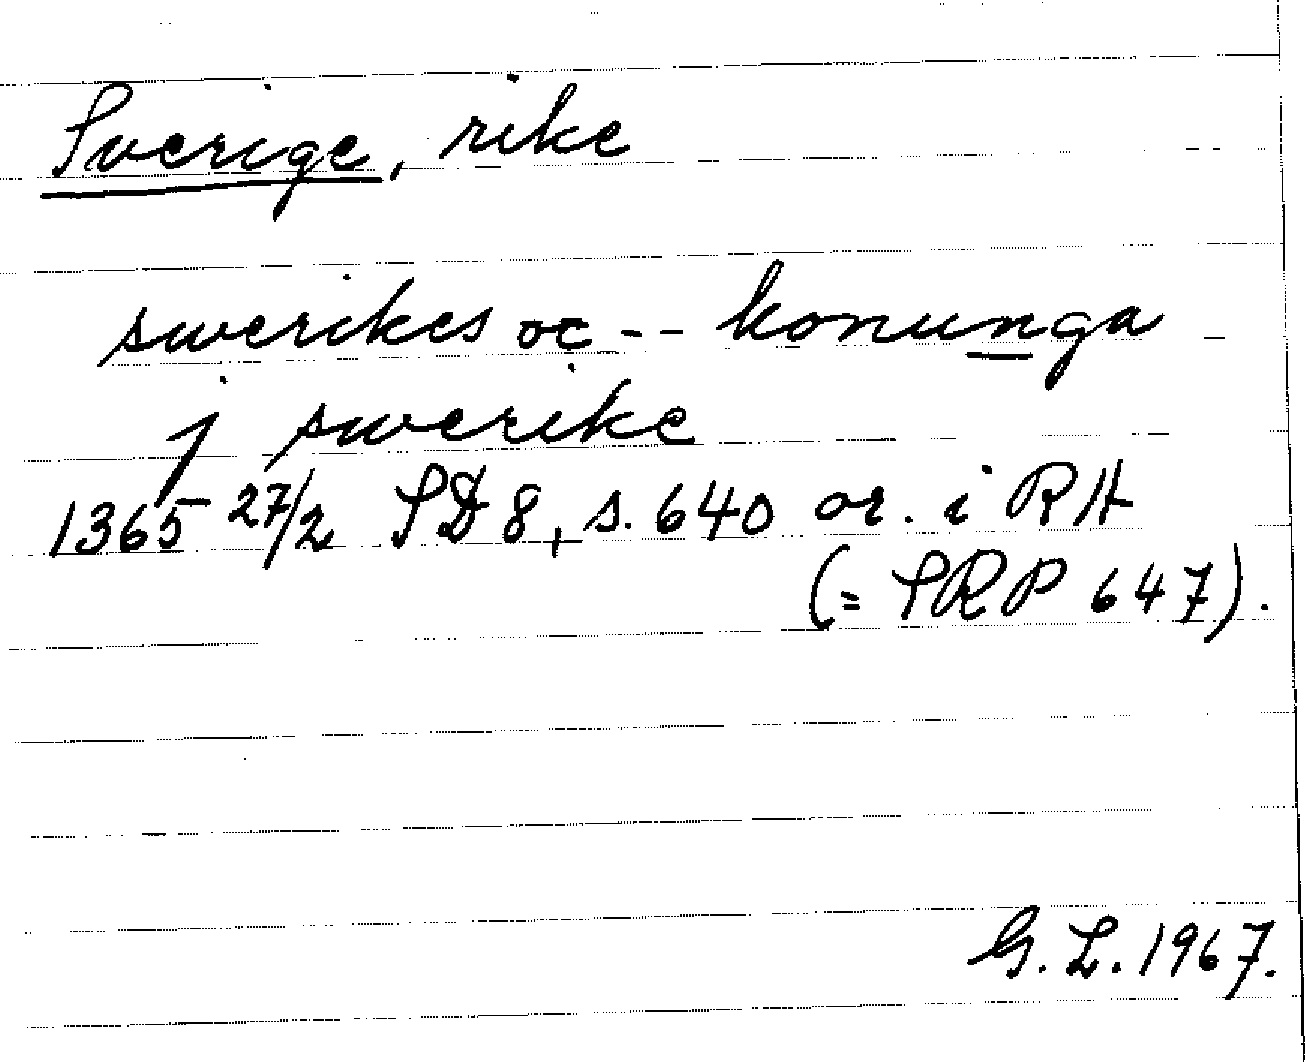 Sverige, rike
swerikes oc -- konunga
j swerike
1365 27/2 SD 8, s. 640 or. i RA
(= SRP 647).
G. L. 1967.